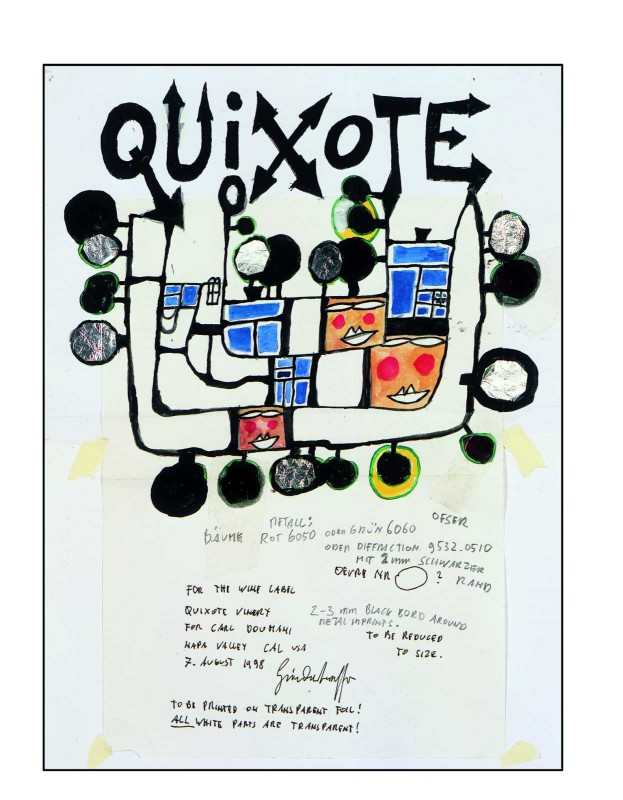 QUiXOTE
METALL:
BÄUME ROT 6050 ODER GRÜN 6060 OESER
ODER DIFFRACTION 9532-0510
MIT 2mm SCHWARZER
OEVRE NR ? RAND
FOR THE WINE LABEL
QUIXOTE VINERY
FOR CARL DOUMANI
NAPA VALLEY CAL USA
7. AUGUST 1998
2-3 mm BLACK BORD AROUND
METAL IMPRINTS.
TO BE REDUCED
TO SIZE.
TO BE PRINTED ON TRANSPARENT FOIL!
ALL WHITE PARTS ARE TRANSPARENT!